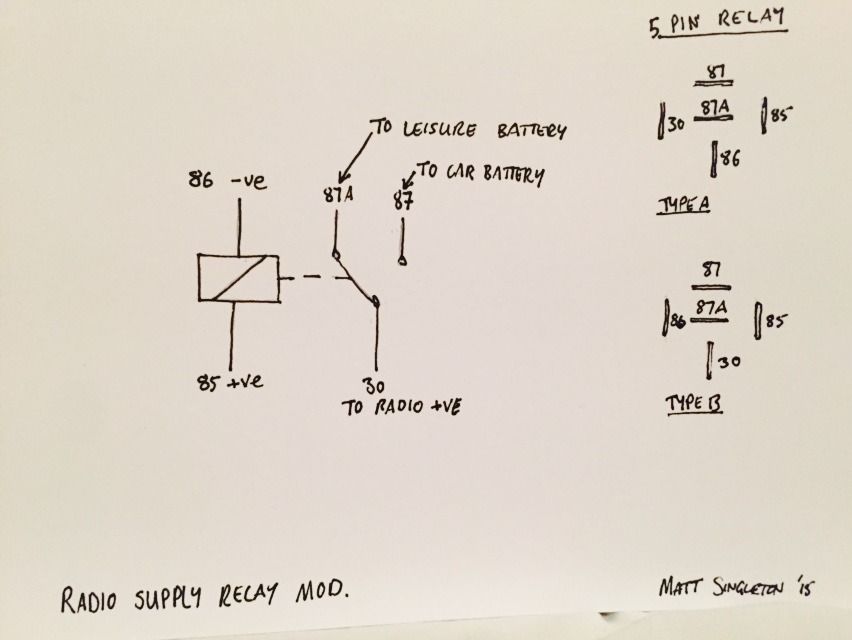 5 PIN RELAY
87
30 87A 85
86
TYPE A
TO LEISURE BATTERY
TO CAR BATTERY
86 -ve
87A
87
85 +ve
30
TO RADIO +VE
87
86 87A 85
30
TYPE B
RADIO SUPPLY RELAY MOD.
MATT SINGLETON '15